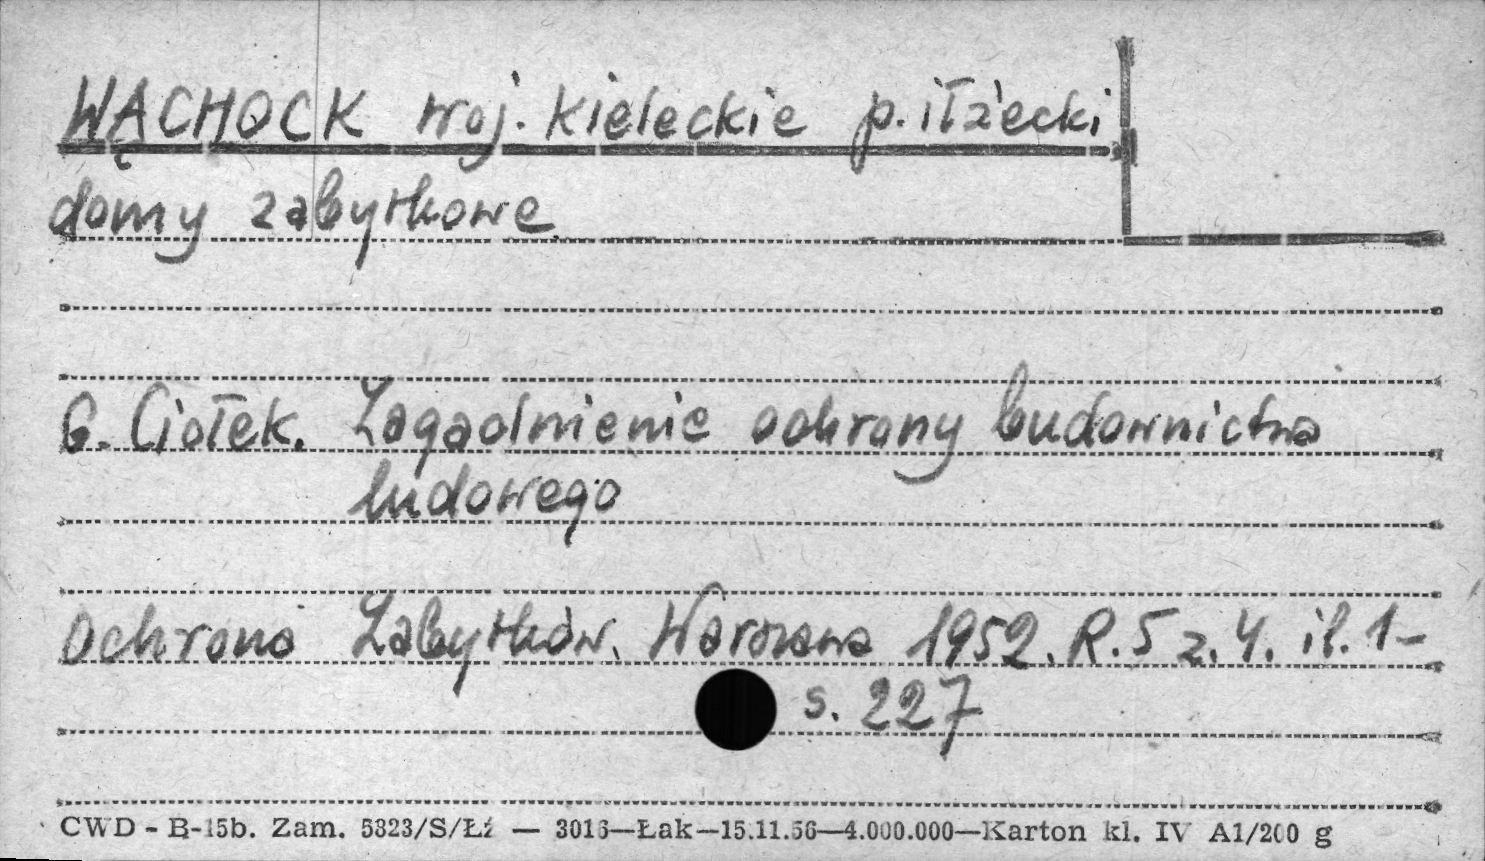 WĄCHOCK woj. kieleckie p. iłżecki
domy zabytkowe
G. Ciołek. Zagadnienie ochrony budownictwa
ludowego
Ochrona Zabytków. Warszawa 1952. R. 5 z. 4. il. 1-
s. 227
CWD - B-15b. Zam. 5323/S/Łź — 3016—Łak—15.11.56—4.000.000—Karton kl. IV A1/200 g